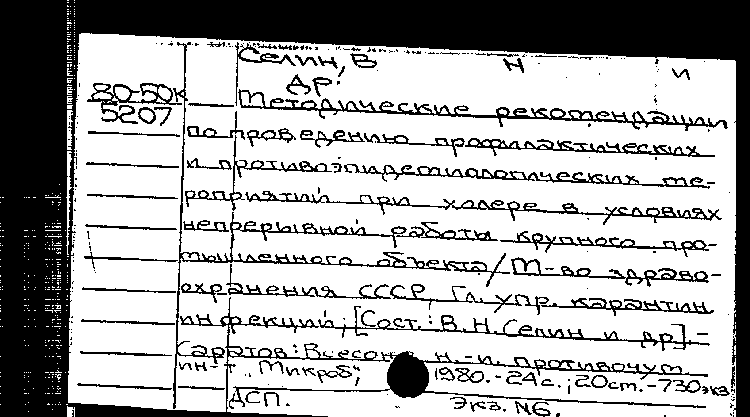 Селин, В Н и
др.
80-50к
5207
Методические рекомендации
по проведению профилактических
и противоэпидемиологических ме-
роприятий при холере в условиях
непрерывной работы крупного про-
мышленного объекта/М-во здраво-
охранения СССР, Гл. упр. карантин
инфекций; [Сост.: В.Н.Селин и др].-
Саратов: Всесоюз н.-и. противочум
ин-т „Микроб", 1980.-24с.; 20см.-730экз
ДСП. Экз. №6.